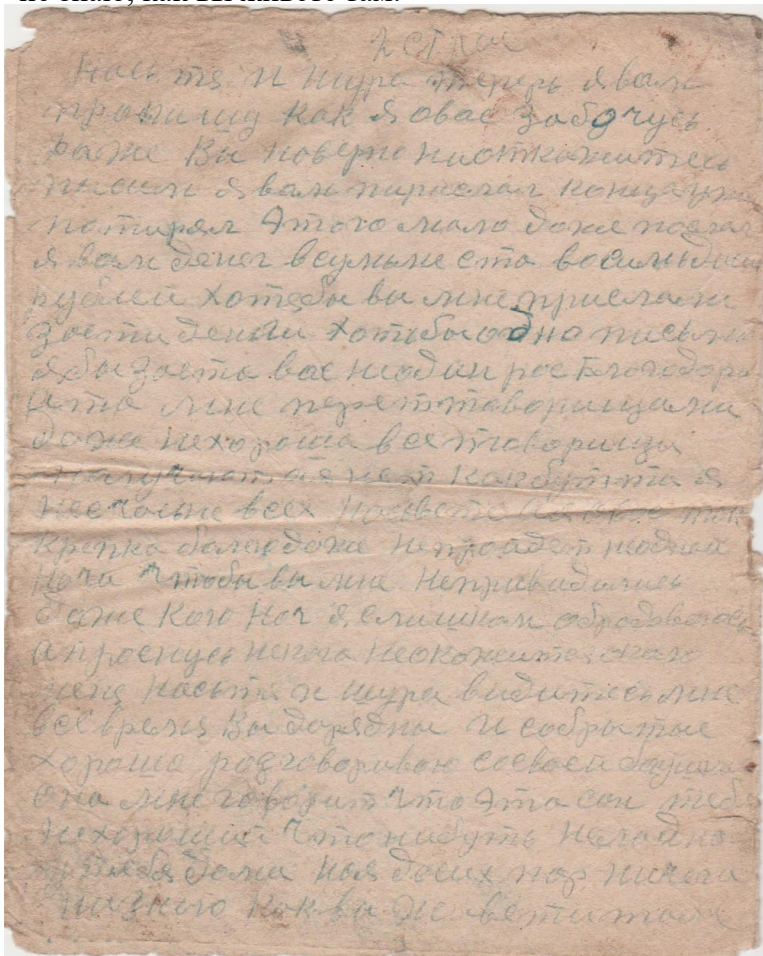 2 стран
Насьтя и Шура теперь я вам
пропишу как я овас забочусь
даже Вы наверно ниоткажитесь
писим я вам пирислал конца уже
потирял Этого мало даже послал
я вам денег всумьме ста восимьдисят
рублей хотябы вы мне прислали
заети деньги хотибы одно письмо
я бы заета вас ниодин рас блогодарил
а то мне перет товорищами
даже нехороша все товорищи
получают а я нет как бутта я
несчасне всех насвете
крепка далею даже непройдет ниодной
ночи чтобы вы мне непривидились
даже кою ноч я слишком обрадоваюсь
апроснусь некого неокожится около
мене Насьтя и Шура видитесь мне
всё время Вы дорядны и собрытые
хорошо розговориваю сосвоей
она мне говорит что Эта сон тебе
нехороший что нибуть неладно
утебя дома ноя досих пор ничего
низнаю как вы живёти там